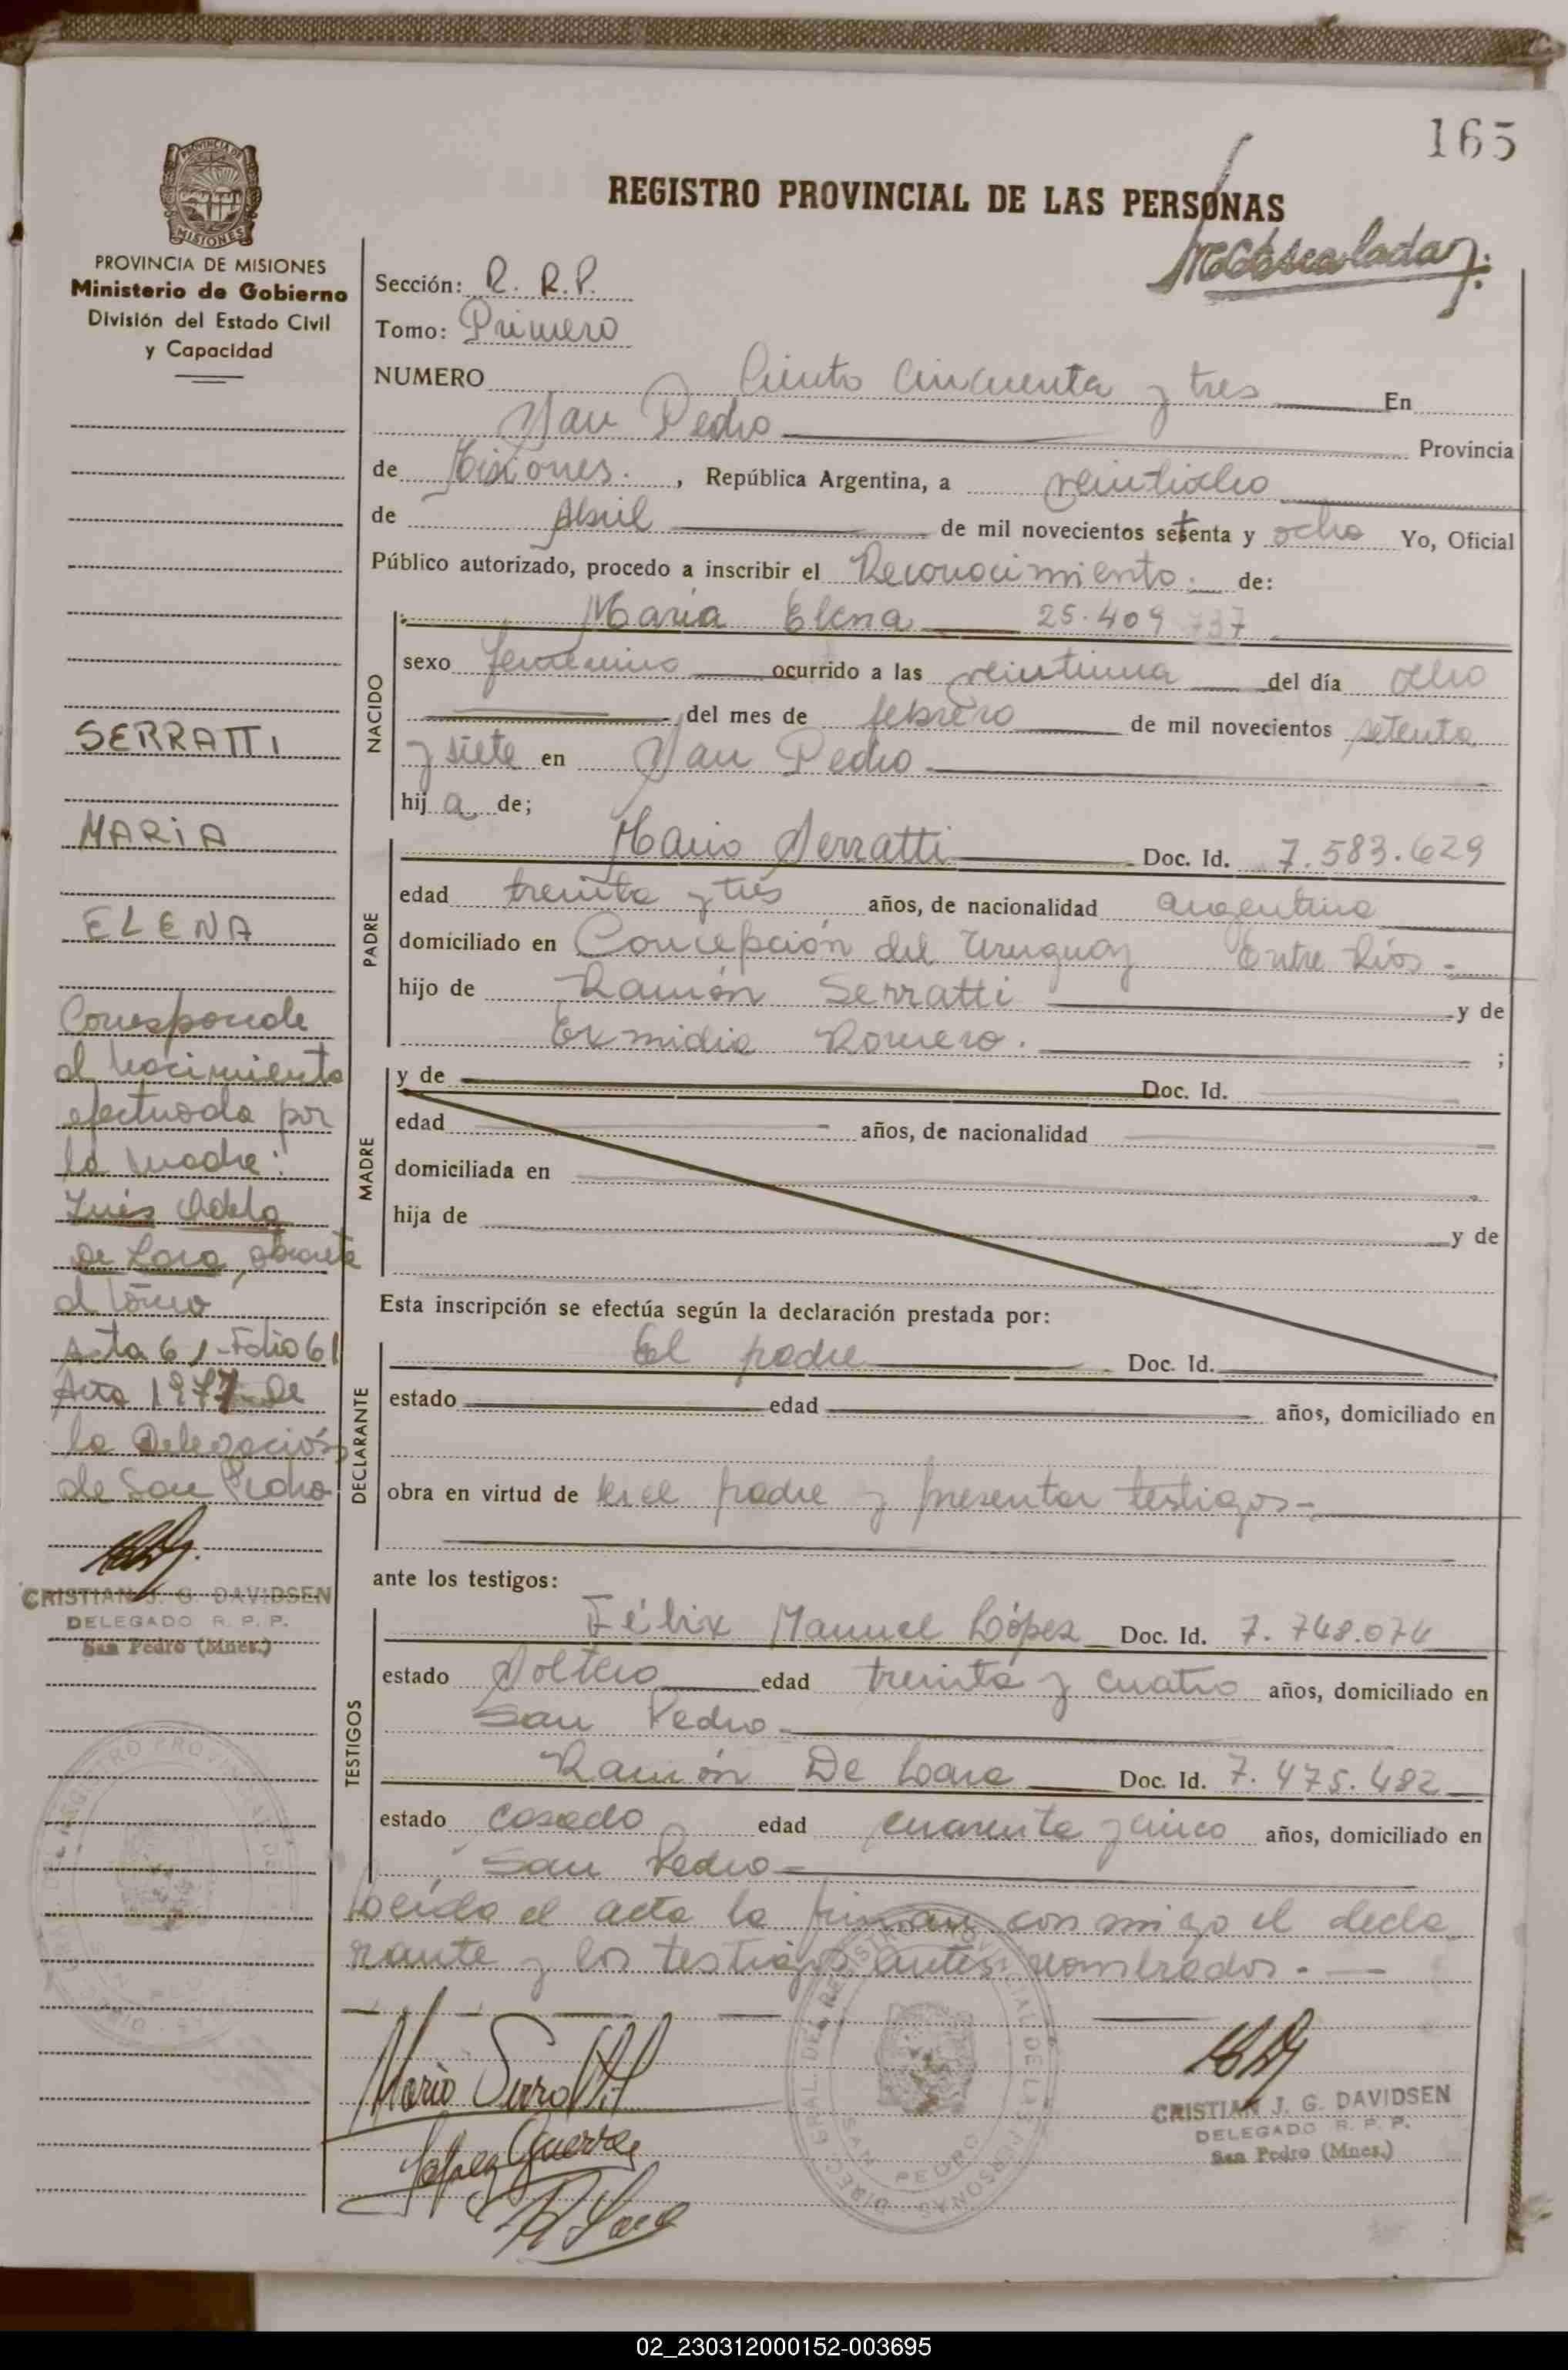 165
REGISTRO PROVINCIAL DE LAS PERSONAS
PROVINCIA DE MISIONES
Ministerio de Gobierno
División del Estado Civil
y Capacidad
Sección: R. R.P.
Tomo: Primero
NUMERO Ciento Cincuenta y tres En
San Pedro Provincia
de Misiones. , República Argentina, a veintiocho
de Abril de mil novecientos setenta y ocho Yo, Oficial
Público autorizado, procedo a inscribir el Reconocimiento. de:
NACIDO
María Elena 25.409 737
sexo femenino ocurrido a las veintiuna del día ocho
del mes de febrero de mil novecientos setenta
y siete en San Pedro
hij a de;
PADRE
Mario Serratti Doc. Id. 7.583.629
edad treinta y tres años, de nacionalidad argentina
domiciliado en Concepción del Uruguay Entre Ríos -
hijo de Ramón Serratti y de
Romero. ;
MADRE
y de Doc. Id.
edad años, de nacionalidad
domiciliada en
hija de y de
Esta inscripción se efectúa según la declaración prestada por:
DECLARANTE
El padre Doc. Id.
estado edad años, domiciliado en
obra en virtud de ser el padre y presentar testigos-
ante los testigos:
TESTIGOS
Félix Manuel López Doc. Id. 7. 748.074
estado Soltero edad treinta y cuatro años, domiciliado en
San Pedro-
Ramón De Lara Doc. Id. 7. 475. 482
estado casado edad cuarenta y cinco años, domiciliado en
San Pedro-
Leída el acta la firman con migo el decla
rante y los testigos antes nombrados. -
Mario Serratti
CRISTIAN J. G. DAVIDSEN
DELEGADO R. P. P.
San Pedro (Mnes.)
SERRATTI
MARIA
ELENA
Corresponde
al Nacimiento
efectuada por
la madre:
Inés Adela
De Lara, obrante
al tomo
Acta 61-Folio 61
Año 1977 de
la Delegación
de San Pedro
CRISTIAN J. G. DAVIDSEN
DELEGADO R. P. P.
San Pedro (Mnes.)
02_230312000152-003695